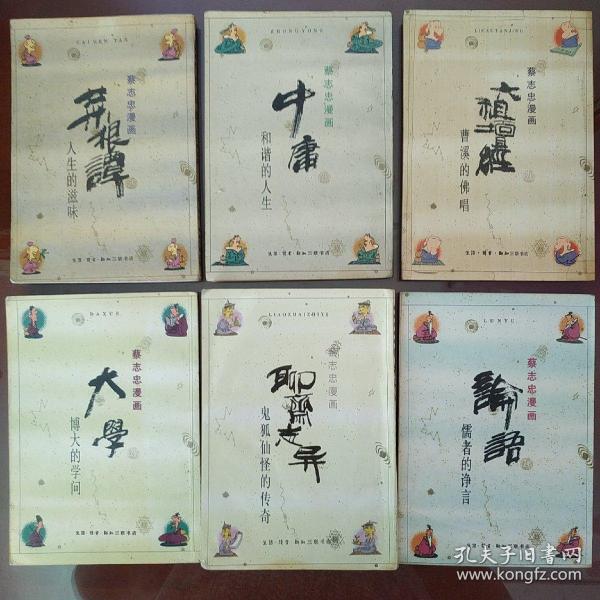 CAI GEN TAN
蔡志忠漫画
菜根譚
人生的滋味
生活·读书·新知三联书店
ZHONGYONG
蔡志忠漫画
中庸
和谐的人生
生活·读书·新知三联书店
LIUZUTANJING
蔡志忠漫画
六祖壇經
曹溪的佛唱
生活·读书·新知三联书店
DAXUE
蔡志忠漫画
大學
博大的学问
生活·读书·新知三联书店
LIAOZHAIZHIYI
蔡志忠漫画
聊齋志异
鬼狐仙怪的传奇
生活·读书·新知三联书店
LUNYU
蔡志忠漫画
論語
儒者的诤言
生活·读书·新知三联书店
孔夫子旧书网
www.kongfz.com